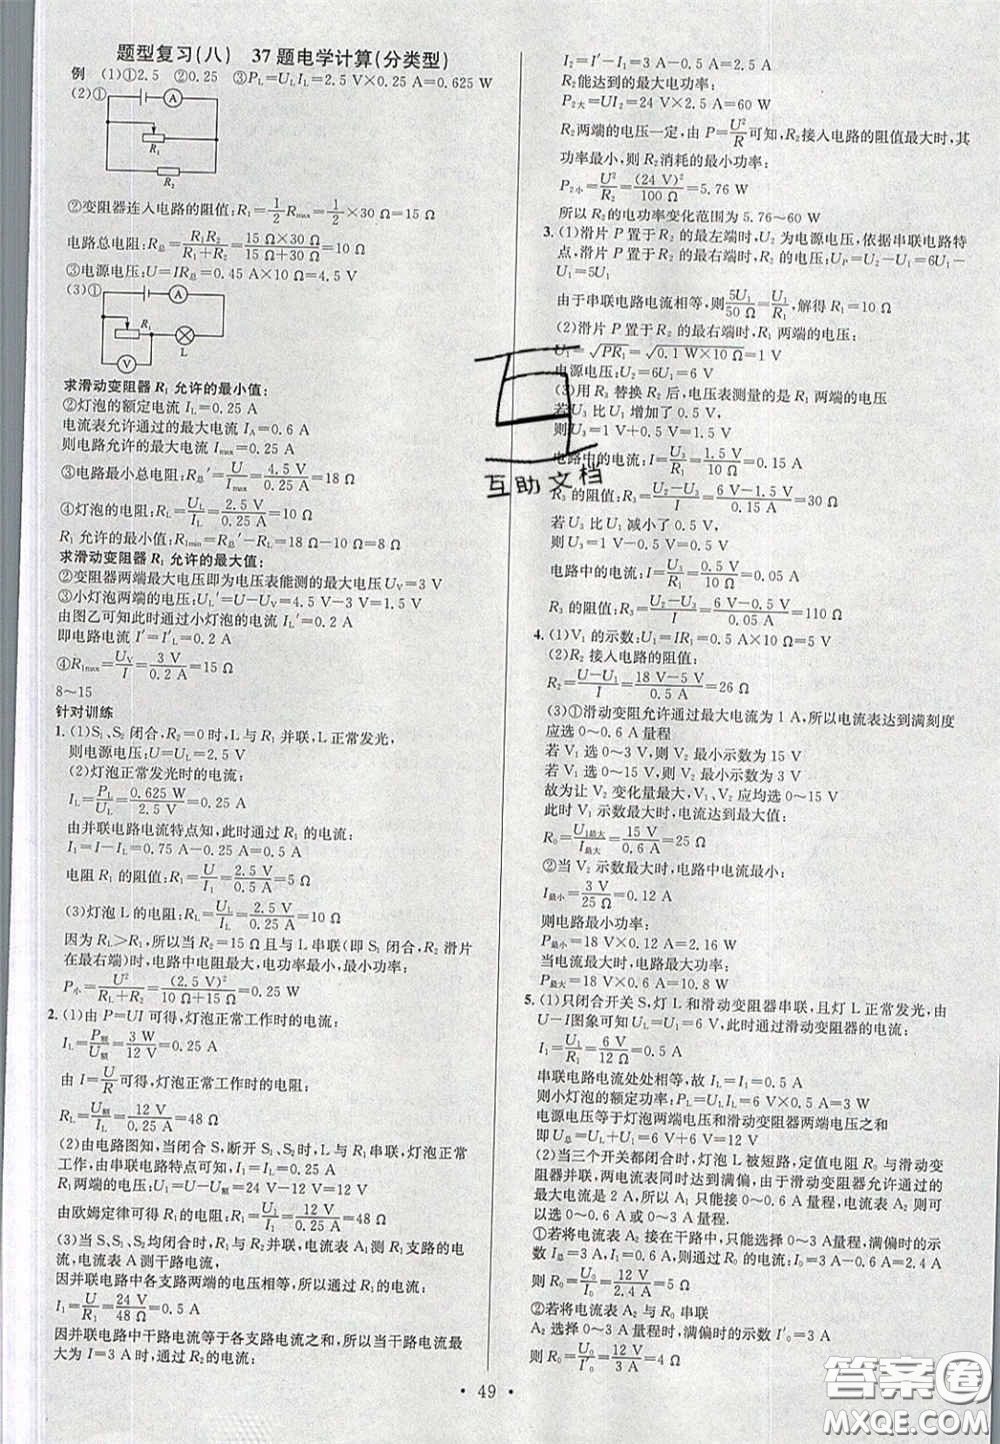 题型复习(八) 37题电学计算(分类型)
例 (1)①2.5 ②0.25 ③P_L=U_L I_L=2.5 V×0.25 A=0.625 W
(2)①
A
R₁
R₂
②变阻器连入电路的阻值:R₁=1/2 R_max=1/2×30 Ω=15 Ω
电路总电阻:R总=R₁R₂/(R₁+R₂)=15 Ω×30 Ω/(15 Ω+30 Ω)=10 Ω
③电源电压:U=IR总=0.45 A×10 Ω=4.5 V
(3)①
A
R₁
L
V
求滑动变阻器 R₁ 允许的最小值:
②灯泡的额定电流 I_L=0.25 A
电流表允许通过的最大电流 I_A=0.6 A
则电路允许的最大电流 I_max=0.25 A
③电路最小总电阻:R总′=U/I_max=4.5 V/0.25 A=18 Ω
④灯泡的电阻:R_L=U_L/I_L=2.5 V/0.25 A=10 Ω
R₁ 允许的最小值:R_1min=R总′-R_L=18 Ω-10 Ω=8 Ω
求滑动变阻器 R₁ 允许的最大值:
②变阻器两端最大电压即为电压表能测的最大电压 U_V=3 V
③小灯泡两端的电压:U_L′=U-U_V=4.5 V-3 V=1.5 V
由图乙可知此时通过小灯泡的电流 I_L′=0.2 A
即电路电流 I′=I′_L=0.2 A
④R_1max=U_V/I=3 V/0.2 A=15 Ω
8~15
针对训练
1. (1)S₁、S₂ 闭合,R₂=0时,L与 R₁ 并联,L正常发光,
则电源电压:U=U_L=2.5 V
(2)灯泡正常发光时的电流:
I_L=P_L/U_L=0.625 W/2.5 V=0.25 A
由并联电路电流特点知,此时通过 R₁ 的电流:
I₁=I-I_L=0.75 A-0.25 A=0.5 A
电阻 R₁ 的阻值:R₁=U/I₁=2.5 V/0.5 A=5 Ω
(3)灯泡 L 的电阻:R_L=U_L/I_L=2.5 V/0.25 A=10 Ω
因为 R_L>R₁,所以当 R₂=15 Ω且与 L 串联(即 S₁ 闭合,R₂ 滑片
在最右端)时,电路中电阻最大,电功率最小,其最小值:
P小=U²/(R_L+R₂)=(2.5 V)²/(10 Ω+15 Ω)=0.25 W
2. (1)由 P=UI 可得,灯泡正常工作时的电流:
I_L=P额/U额=3 W/12 V=0.25 A
由 I=U/R可得,灯泡正常工作时的电阻:
R_L=U额/I_L=12 V/0.25 A=48 Ω
(2)由电路图知,当闭合 S,断开 S₁、S₂时,L与 R₁ 串联,灯泡正常
工作,由串联电路特点可知,I₁=I_L=0.25 A
R₁两端的电压:U₁=U-U额=24 V-12 V=12 V
由欧姆定律可得 R₁的电阻:R₁=U₁/I₁=12 V/0.25 A=48 Ω
(3)当 S、S₁、S₂均闭合时,R₁与 R₂ 并联,电流表 A₁ 测 R₁支路的电
流,电流表 A 测干路电流,
因并联电路中各支路两端的电压相等,所以通过 R₁ 的电流:
I₁=U/R₁=24 V/48 Ω=0.5 A
因并联电路中干路电流等于各支路电流之和,所以当干路电流最
大为 I=3 A时,通过 R₂ 的电流:
I₂=I′-I₁=3 A-0.5 A=2.5 A
R₂能达到的最大电功率:
P₂大=UI₂=24 V×2.5 A=60 W
R₂ 两端的电压一定,由 P=U²/R可知,R₂接入电路的阻值最大时,其
功率最小,则 R₂ 消耗的最小电功率:
P₂小=U²/R₂=(24 V)²/100 Ω=5.76 W
所以 R₂的电功率变化范围为 5.76~60 W
3. (1)滑片 P 置于 R₂ 的最左端时,U₂ 为电源电压,依据串联电路特
点,滑片 P 置于 R₂ 的最右端时,R₂ 的电压:U_P=U₂-U₁=6U₁-
U₁=5U₁
由于串联电路电流相等,则5U₁/50 Ω=U₁/R₁,解得 R₁=10 Ω
(2)滑片 P置于 R₂ 的最右端时,R₁ 两端的电压:
U₁=√PR₁=√0.1 W×10 Ω=1 V
电源电压:U₂=6U₁=6 V
(3)用 R₃ 替换 R₂ 后,电压表测量的是 R₁ 两端的电压
若 U₃ 比 U₁ 增加了 0.5 V,
则 U₃=1 V+0.5 V=1.5 V
电路中的电流:I=U₃/R₁=1.5 V/10 Ω=0.15 A
R₃ 的阻值:R₃=(U₂-U₃)/I=(6 V-1.5 V)/0.15 A=30 Ω
若 U₃ 比 U₁ 减小了 0.5 V,
则 U₃=1 V-0.5 V=0.5 V
电路中的电流:I=U₃/R₁=0.5 V/10 Ω=0.05 A
R₃ 的阻值:R₃=(U₂-U₃)/I=(6 V-0.5 V)/0.05 A=110 Ω
4. (1)V₁ 的示数:U₁=IR₁=0.5 A×10 Ω=5 V
(2)R₂ 接入电路的阻值:
R₂=(U-U₁)/I=(18 V-5 V)/0.5 A=26 Ω
(3)①滑动变阻允许通过最大电流为 1 A,所以电流表达到满刻度
应选 0~0.6 A 量程
若 V₁ 选 0~3 V,则 V₂ 最小示数为 15 V
若 V₁ 选 0~15 V,则 V₂ 最小示数为 3 V
故为让 V₂ 变化量最大,V₁、V₂ 应均选 0~15 V
此时 V₁ 示数最大时,电流达到最大值:
R₀=U₁最大/I最大=15 V/0.6 A=25 Ω
②当 V₂ 示数最大时,电路中电流最小:
I最小=3 V/25 Ω=0.12 A
则电路最小功率:
P最小=18 V×0.12 A=2.16 W
当电流最大时,电路最大功率:
P最大=18 V×0.6 A=10.8 W
5. (1)只闭合开关 S,灯 L 和滑动变阻器串联,且灯 L 正常发光,由
U-I图象可知 U_L=U₁=6 V,此时通过滑动变阻器的电流:
I₁=U₁/R₁=6 V/12 Ω=0.5 A
串联电路电流处处相等,故 I_L=I₁=0.5 A
则小灯泡功率:P_L=U_L I_L=6 V×0.5 A=3 W
电源电压等于灯泡两端电压和滑动变阻器两端电压之和
即 U总=U₁+U_L=6 V+6 V=12 V
(2)当三个开关都闭合时,灯泡 L 被短路,定值电阻 R₀ 与滑动变
阻器并联,两电流表同时达到满偏,由于滑动变阻器允许通过的
最大电流是 2 A,所以 A₁ 只能接 0~0.6 A 量程,电流表 A₂ 则可
以选 0~0.6 A或 0~3 A 量程.
①若将电流表 A₂ 接在干路中,只能选择 0~3 A量程,满偏时的示
数 I总=3 A,电流表 A₁ 示数 I₁=0.6 A,则通过 R₀ 的电流:I₀=2.4 A
则 R₀=U₀/I₀=12 V/2.4 A=5 Ω
②若将电流表 A₂ 与 R₀ 串联
A₂ 选择 0~3 A 量程时,满偏时的示数 I′₀=3 A,
则 R₀=U₀/I′₀=12 V/3 A=4 Ω
· 49 ·
互助文档
答案圈
MXQE.COM